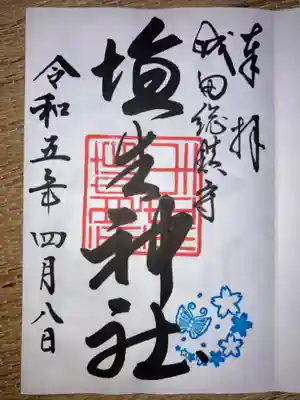 奉拝
成田総鎮守
埴生神社
令和五年四月八日